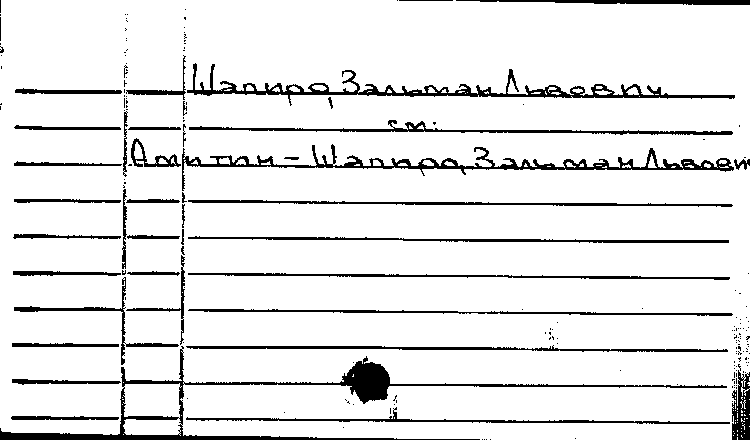 Шапиро, Зальман Львович
см:
Амитин-Шапиро, Зальман Львович